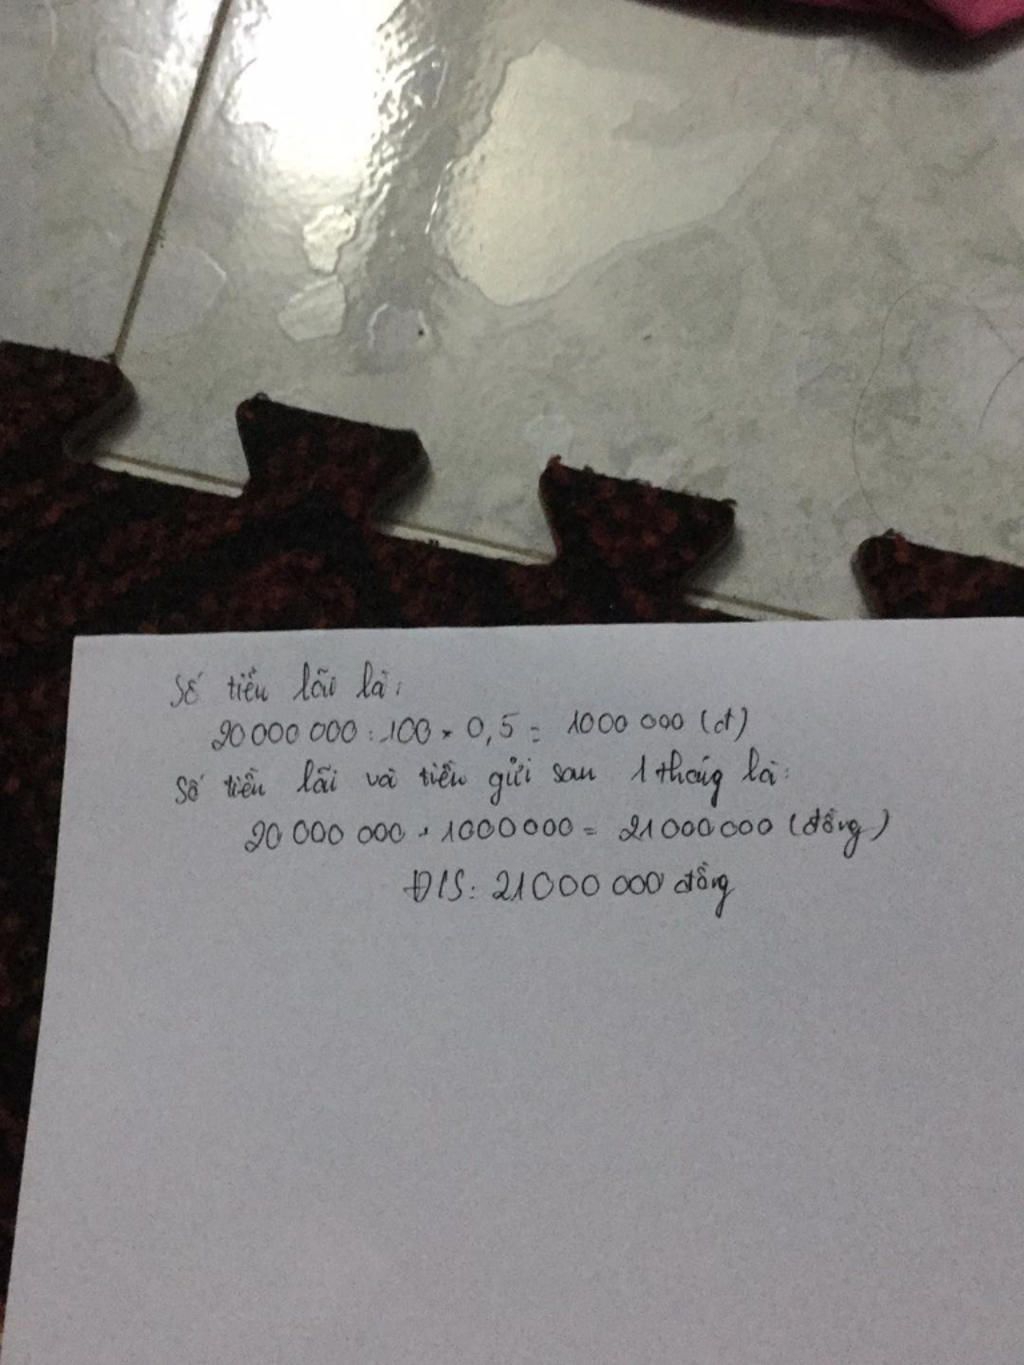 Số tiền lãi là:
20 000 000 : 100 × 0,5 = 1000 000 (đ)
Số tiền lãi và tiền gửi sau 1 tháng là:
20 000 000 + 1000000 = 21000000 (đồng)
Đ/S: 21000 000 đồng